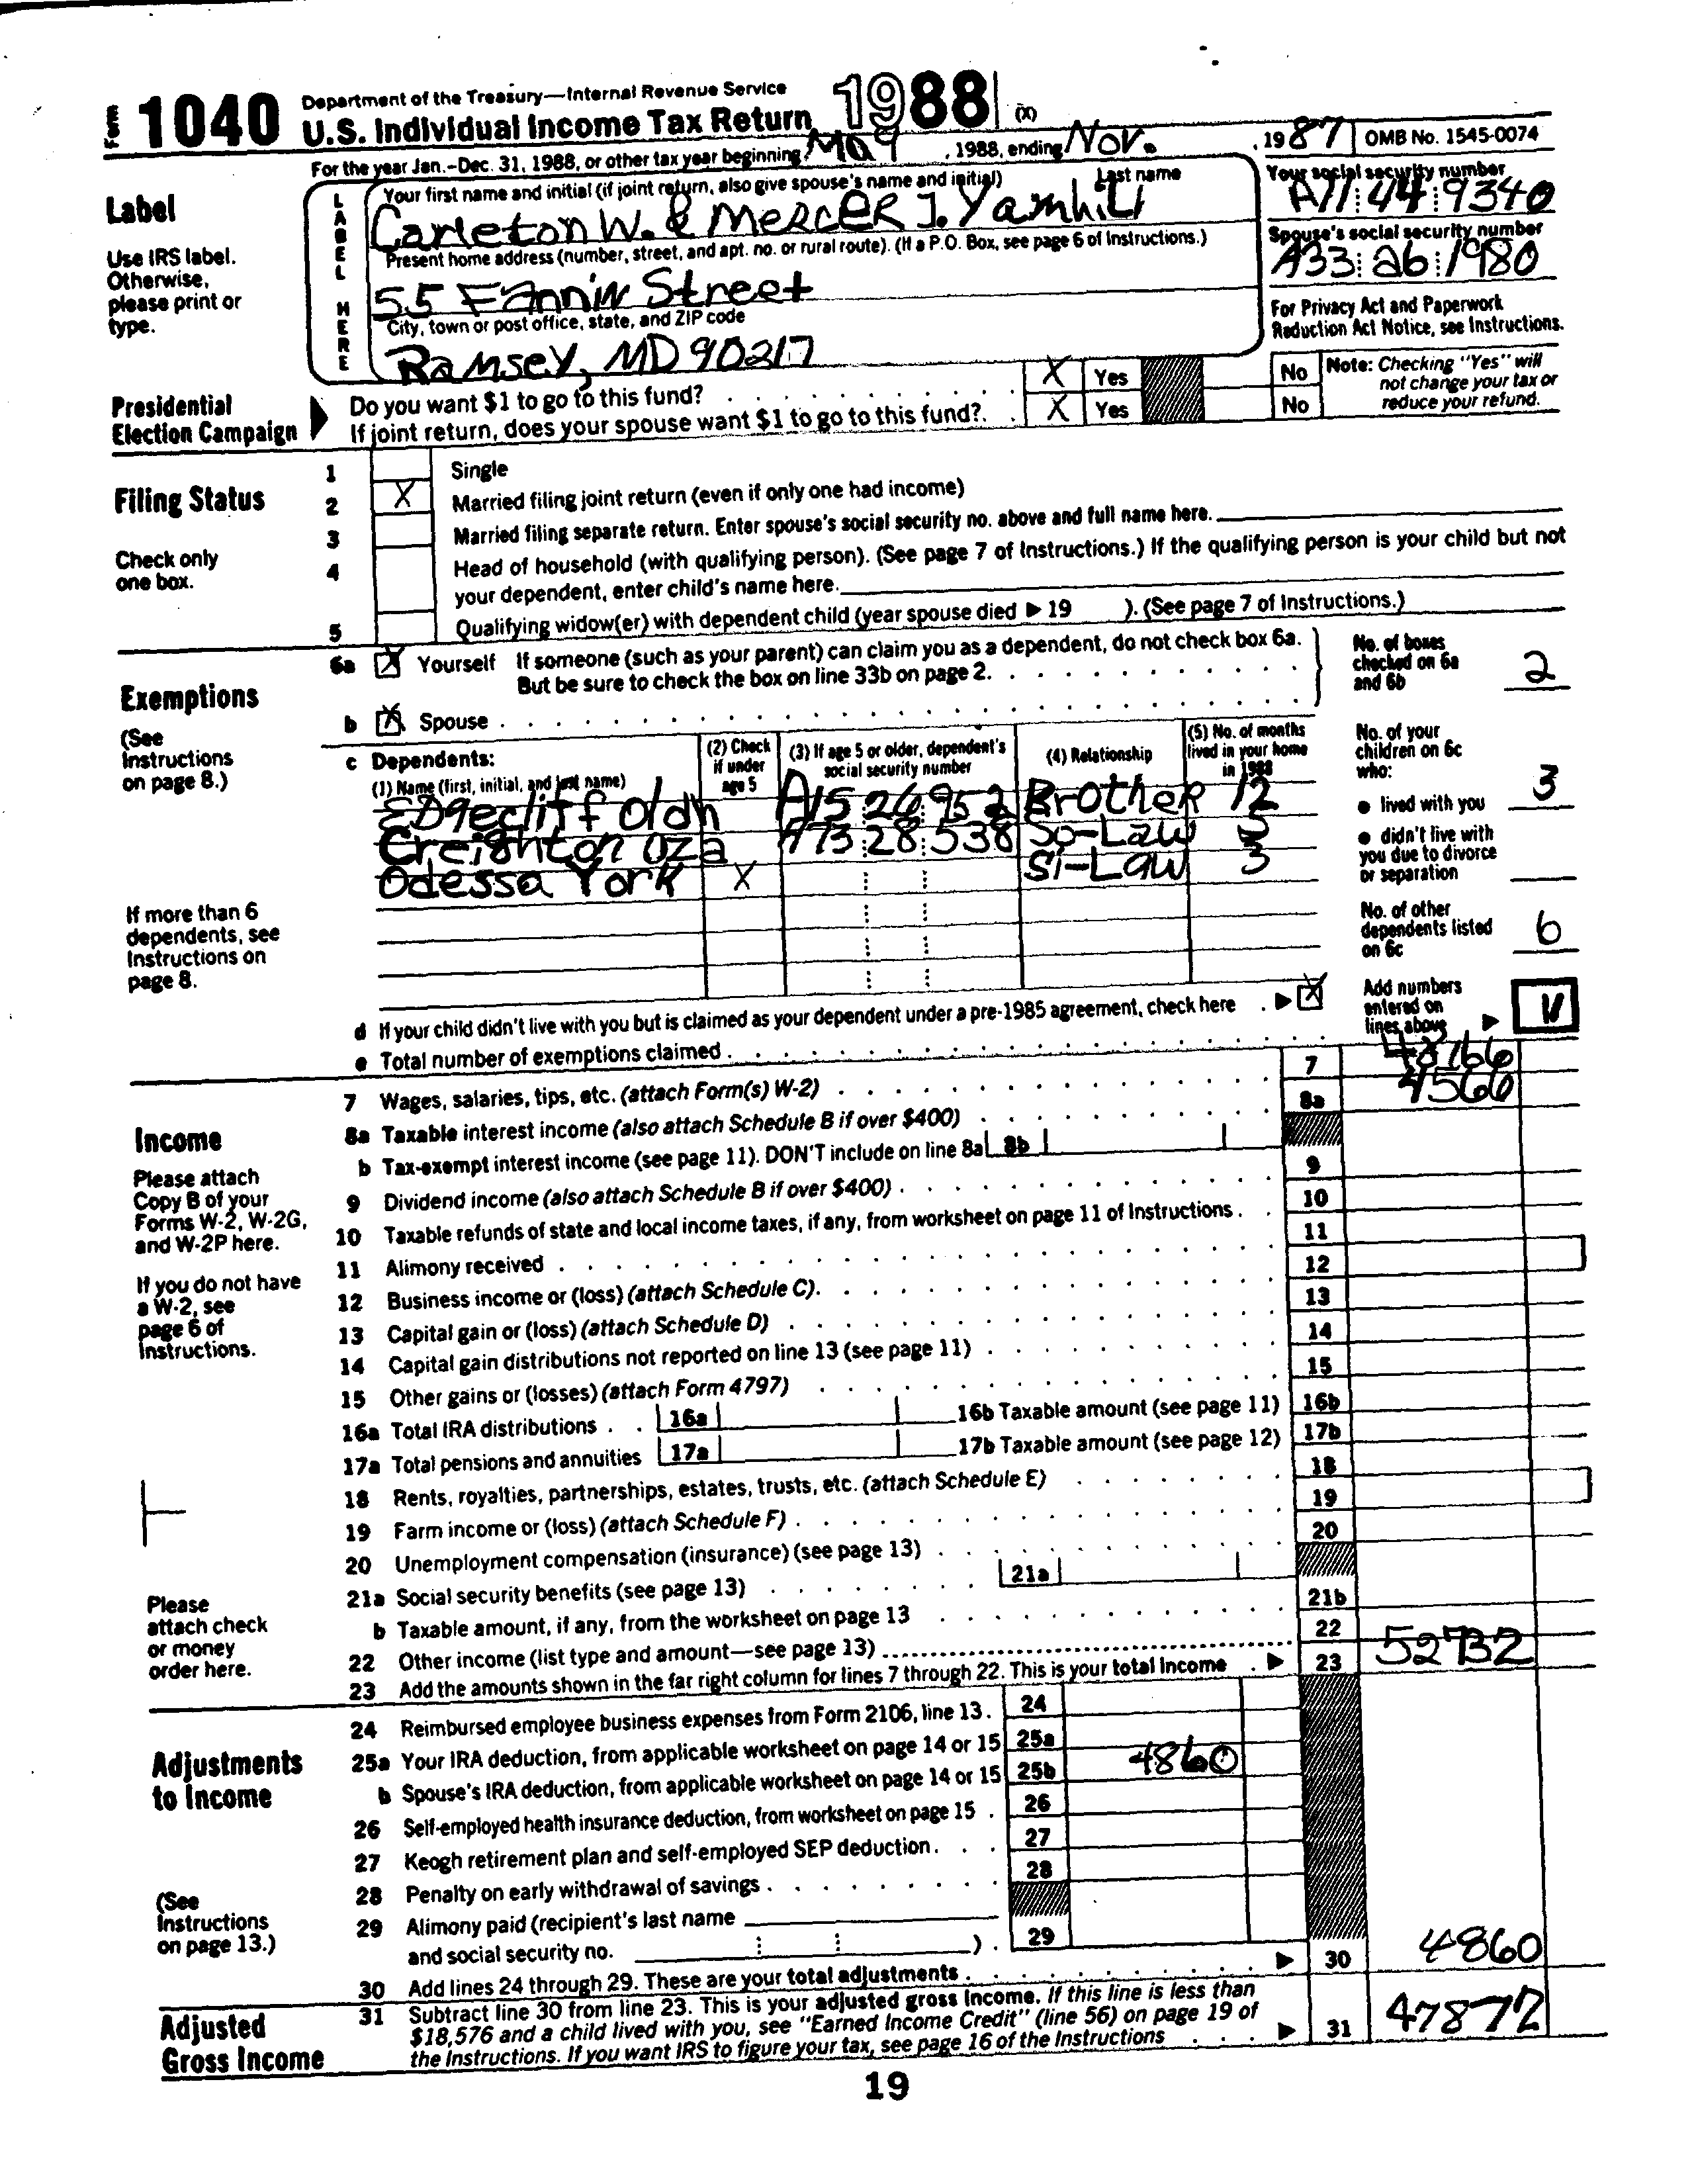 Form 1040 Department of the Treasury—Internal Revenue Service
U.S. Individual Income Tax Return 1988 (X)
For the year Jan.-Dec. 31, 1988, or other tax year beginning May , 1988, ending Nov. , 19 87 OMB No. 1545-0074
Label
Use IRS label. Otherwise, please print or type.
LABEL HERE
Your first name and initial (if joint return, also give spouse's name and initial) Last name
Carleton W. & MERCER J. Yamhill
Your social security number
A11 44 9340
Present home address (number, street, and apt. no. or rural route). (If a P.O. Box, see page 6 of Instructions.)
55 Fannin Street
Spouse's social security number
A33 26 1980
City, town or post office, state, and ZIP code
Ramsey, MD 90217
For Privacy Act and Paperwork Reduction Act Notice, see Instructions.
Presidential Election Campaign
Do you want $1 to go to this fund? X Yes No
If joint return, does your spouse want $1 to go to this fund?. X Yes No
Note: Checking "Yes" will not change your tax or reduce your refund.
Filing Status
Check only one box.
1 Single
2 X Married filing joint return (even if only one had income)
3 Married filing separate return. Enter spouse's social security no. above and full name here.
4 Head of household (with qualifying person). (See page 7 of Instructions.) If the qualifying person is your child but not
your dependent, enter child's name here.
5 Qualifying widow(er) with dependent child (year spouse died ▶ 19 ). (See page 7 of Instructions.)
Exemptions
(See Instructions on page 8.)
6a X Yourself If someone (such as your parent) can claim you as a dependent, do not check box 6a.
But be sure to check the box on line 33b on page 2.
b X Spouse
No. of boxes checked on 6a and 6b 2
c Dependents:
(1) Name (first, initial, and last name)
(2) Check if under age 5
(3) If age 5 or older, dependent's social security number
(4) Relationship
(5) No. of months lived in your home in 1988
EDgecliff Oldh A15 26 952 Brother 12
Creighton Oza A73 28 538 So-Law 5
Odessa York X Si-Law 3
No. of your children on 6c who:
● lived with you 3
● didn't live with you due to divorce or separation
No. of other dependents listed on 6c 6
If more than 6 dependents, see Instructions on page 8.
d If your child didn't live with you but is claimed as your dependent under a pre-1985 agreement, check here ▶ X
e Total number of exemptions claimed
Add numbers entered on lines above ▶ 11
Income
Please attach Copy B of your Forms W-2, W-2G, and W-2P here.
If you do not have a W-2, see page 6 of Instructions.
Please attach check or money order here.
7 Wages, salaries, tips, etc. (attach Form(s) W-2) 7 48166
8a Taxable interest income (also attach Schedule B if over $400) 8a 4566
b Tax-exempt interest income (see page 11). DON'T include on line 8a 8b
9 Dividend income (also attach Schedule B if over $400) 9
10 Taxable refunds of state and local income taxes, if any, from worksheet on page 11 of Instructions 10
11 Alimony received 11
12 Business income or (loss) (attach Schedule C) 12
13 Capital gain or (loss) (attach Schedule D) 13
14 Capital gain distributions not reported on line 13 (see page 11) 14
15 Other gains or (losses) (attach Form 4797) 15
16a Total IRA distributions 16a 16b Taxable amount (see page 11) 16b
17a Total pensions and annuities 17a 17b Taxable amount (see page 12) 17b
18 Rents, royalties, partnerships, estates, trusts, etc. (attach Schedule E) 18
19 Farm income or (loss) (attach Schedule F) 19
20 Unemployment compensation (insurance) (see page 13) 20
21a Social security benefits (see page 13) 21a
b Taxable amount, if any, from the worksheet on page 13 21b
22 Other income (list type and amount—see page 13) 22
23 Add the amounts shown in the far right column for lines 7 through 22. This is your total income ▶ 23 52732
Adjustments to Income
(See Instructions on page 13.)
24 Reimbursed employee business expenses from Form 2106, line 13. 24
25a Your IRA deduction, from applicable worksheet on page 14 or 15 25a
b Spouse's IRA deduction, from applicable worksheet on page 14 or 15 25b 4860
26 Self-employed health insurance deduction, from worksheet on page 15 26
27 Keogh retirement plan and self-employed SEP deduction 27
28 Penalty on early withdrawal of savings 28
29 Alimony paid (recipient's last name
and social security no. ) 29
30 Add lines 24 through 29. These are your total adjustments ▶ 30 4860
Adjusted Gross Income
31 Subtract line 30 from line 23. This is your adjusted gross income. If this line is less than
$18,576 and a child lived with you, see "Earned Income Credit" (line 56) on page 19 of
the Instructions. If you want IRS to figure your tax, see page 16 of the Instructions ▶ 31 47872
19